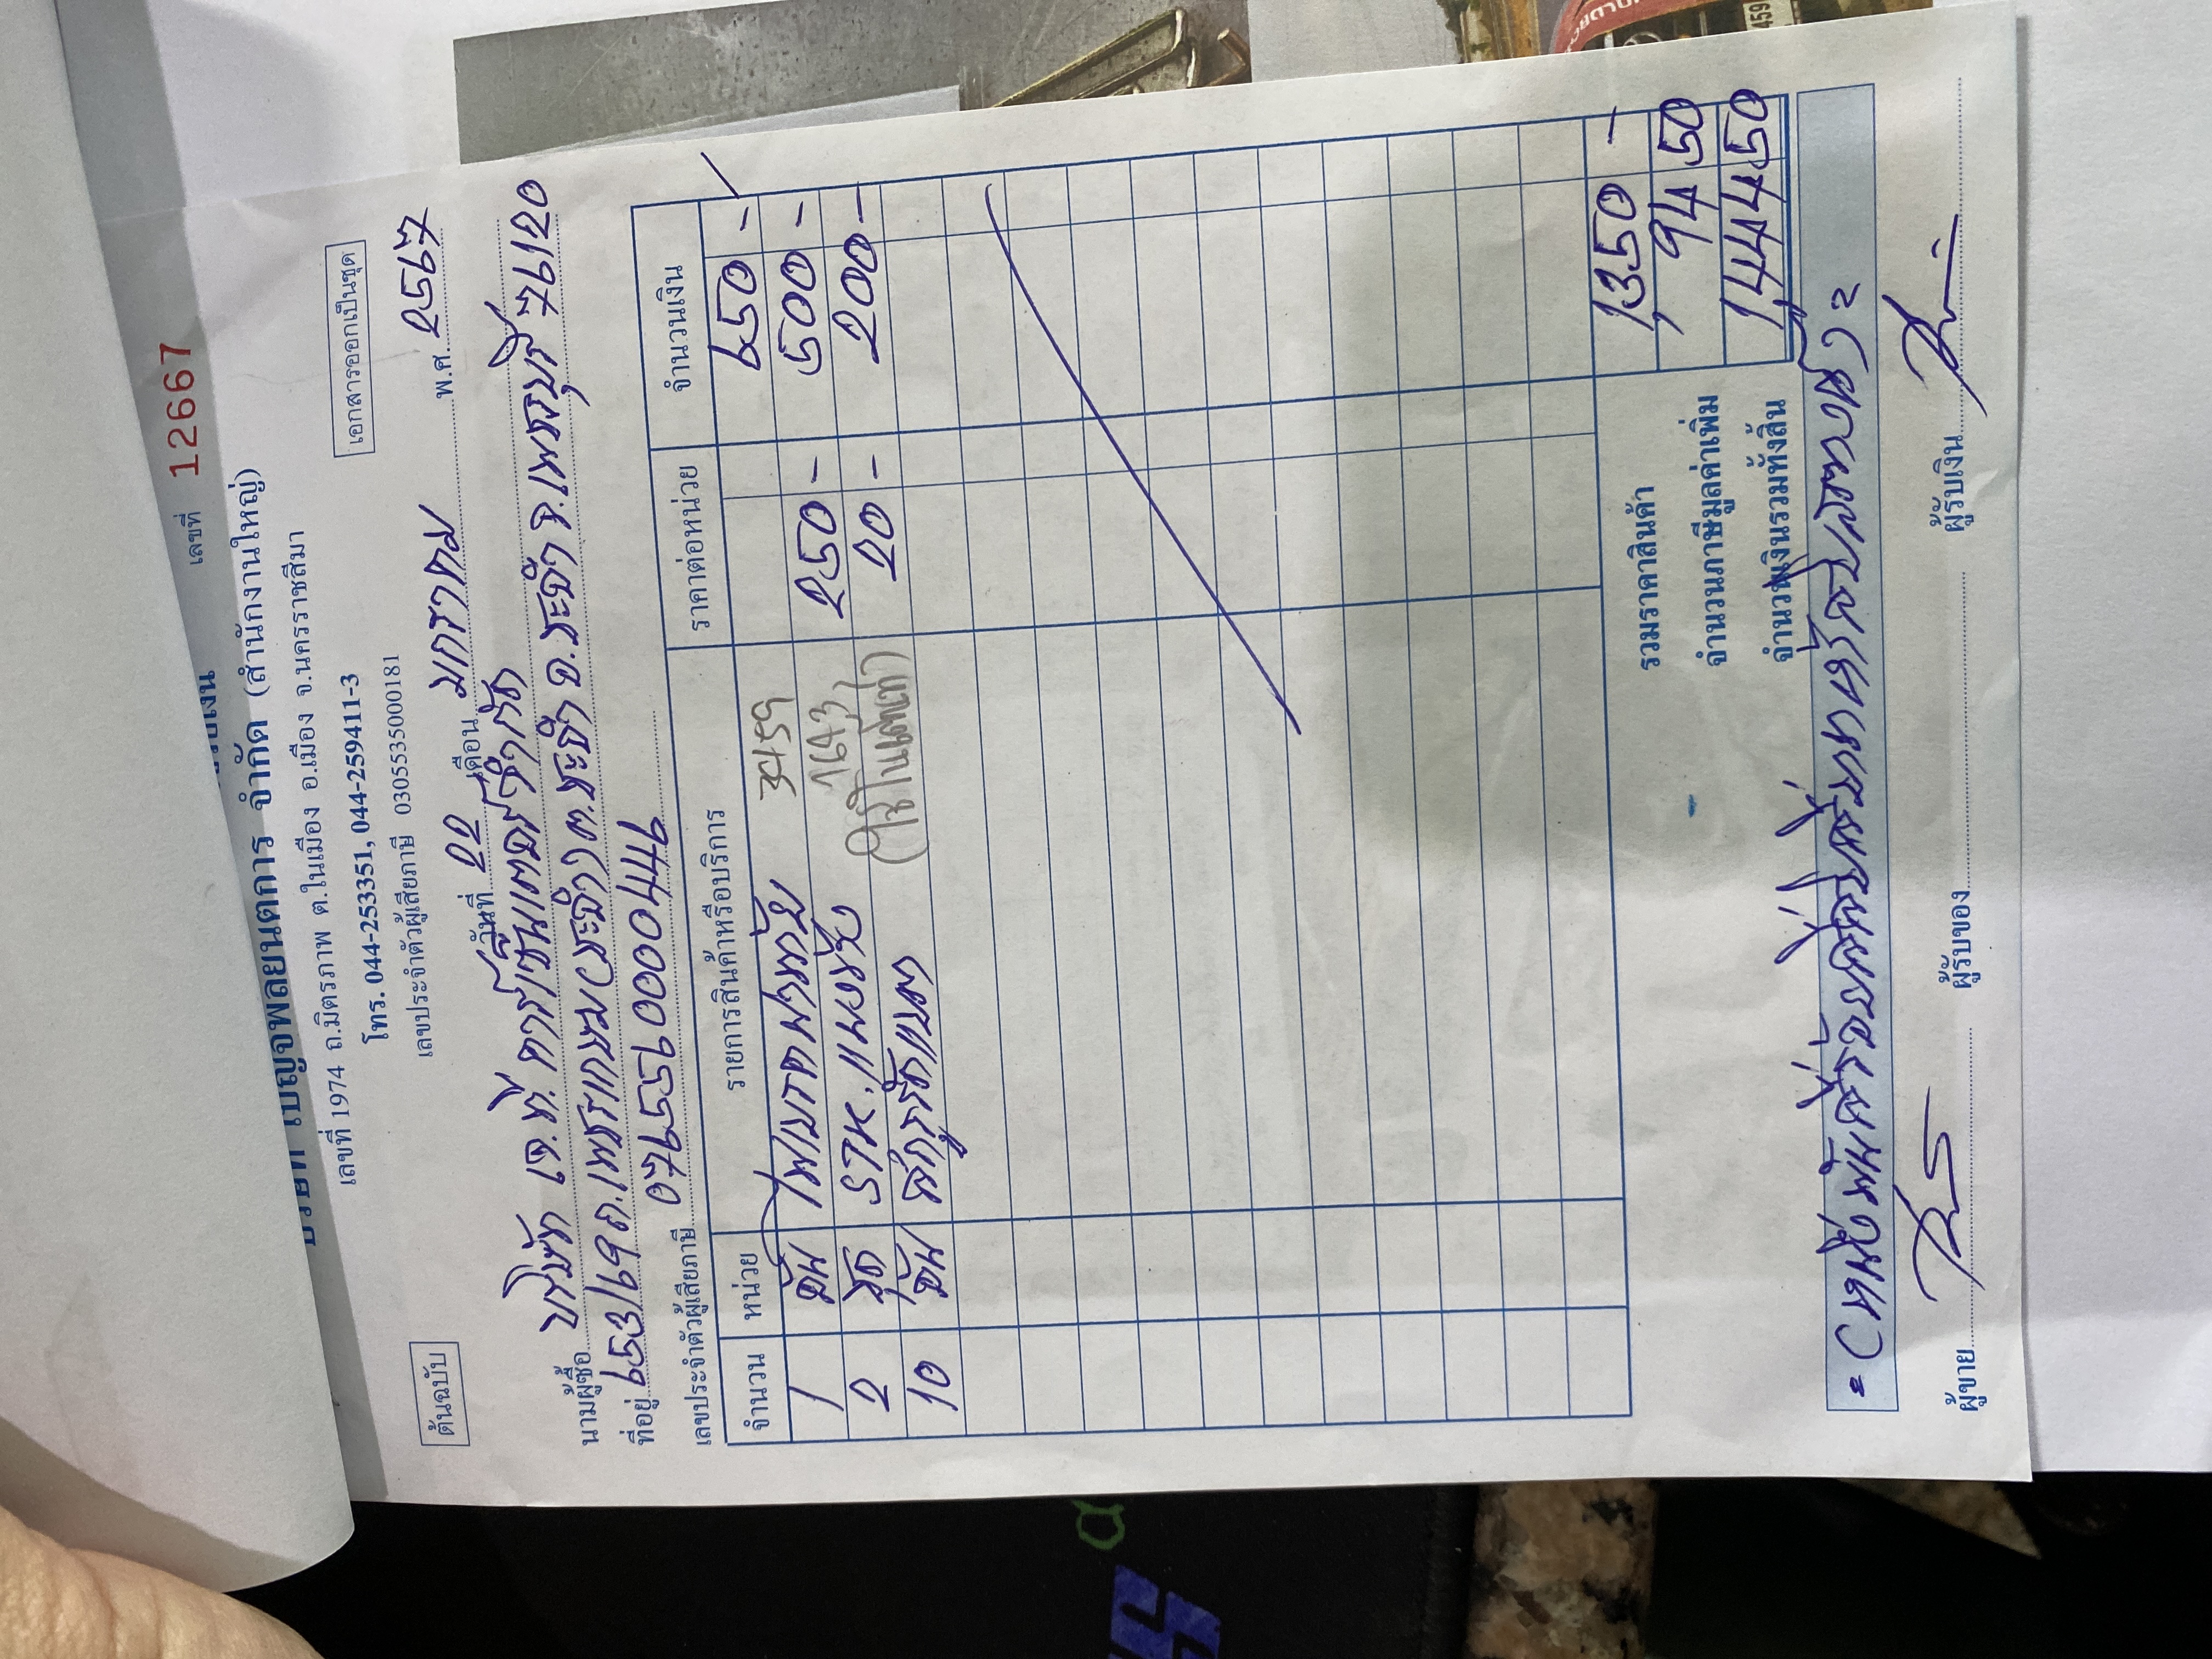 เลขที่ 12667
บริษัท เบญจพลยนตการ จำกัด (สำนักงานใหญ่)
เลขที่ 1974 ถ.มิตรภาพ ต.ในเมือง อ.เมือง จ.นครราชสีมา
โทร. 044-253351, 044-259411-3
เลขประจำตัวผู้เสียภาษี 0305535000181
เอกสารออกเป็นชุด
ต้นฉบับ
วันที่ 22 เดือน มกราคม พ.ศ. 2567
นามผู้ซื้อ บริษัท เจ.ที. คาร์เซ็นเตอร์ จำกัด
ที่อยู่ 953/169 ถ.เพชรเกษม ต.ชะอำ อ.ชะอำ จ.เพชรบุรี 76120
เลขประจำตัวผู้เสียภาษี
จำนวน หน่วย รายการสินค้าหรือบริการ ราคาต่อหน่วย จำนวนเงิน
1 อัน 3459 650 -
2 ชุด 1643 250 - 500 -
10 อัน 20 - 200 -
รวมราคาสินค้า 1,350 -
จำนวนภาษีมูลค่าเพิ่ม 94 50
จำนวนเงินรวมทั้งสิ้น 1,444 50
= (หนึ่งพันสี่ร้อยสี่สิบสี่บาทห้าสิบสตางค์) =
ผู้ขาย ผู้รับของ ผู้รับเงิน
459